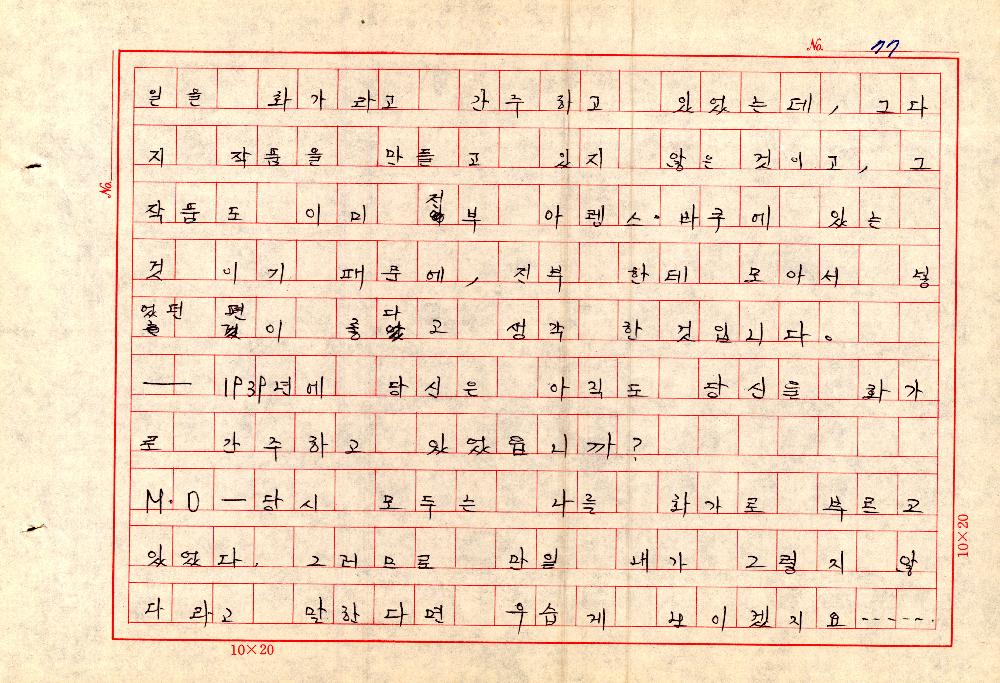 No. 77
일을 화가라고 간주하고 있었는데, 그다
지 작품을 만들고 있지 않은 것이고, 그
작품도 이미 전부 아렌스·바쿠에 있는
것 이기 때문에, 전부 한데 모아서 넣
었던 편이 좋다고 생각한 것입니다.
── 1939년에 당신은 아직도 당신을 화가
로 간주하고 있었읍니까?
M·D ─ 당시 모두는 나를 화가로 부르고
있었다. 그러므로 만일 내가 그렇지 않
다라고 말한다면 우습게 보이겠지요-----
No.
10×20
10×20